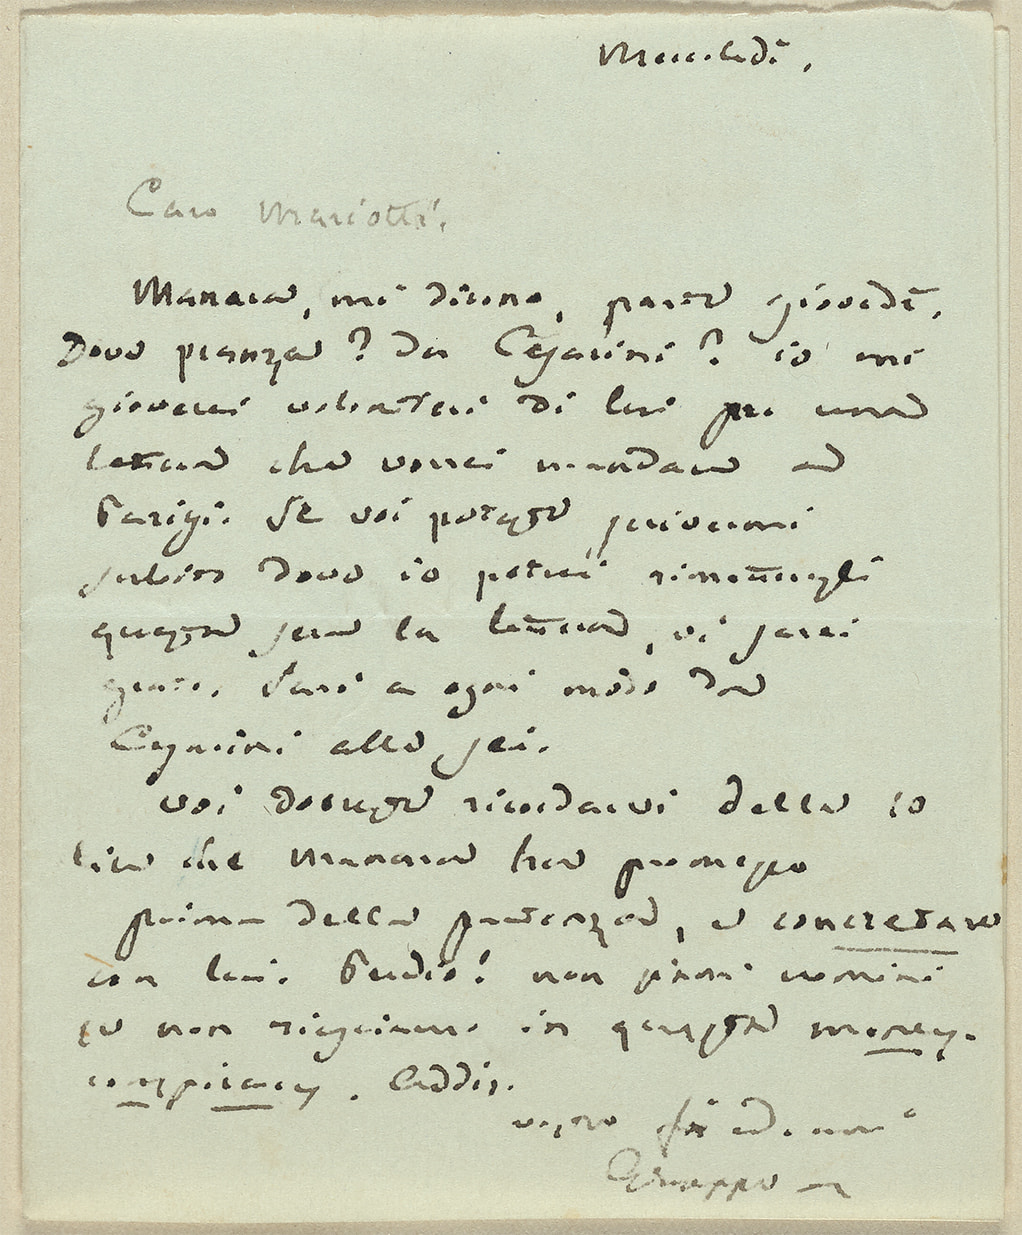 Mercoledì,
Caro Mariotti,
Manara, mi dicono, parte giovedì.
Dove pranza? da Cesarini? io mi
gioverei volentieri di lui per una
lettera che vorrei mandare a
Parigi. Se voi poteste scrivermi
subito dove io potrei rimettergli
questa sera la lettera, vi sarei
grato. Sarò a ogni modo da
alle sei.
Voi doveste ricordarvi delle 10
lire che Manara ha promesso
prima della partenza, e concretare
con lui. Perdio! non siamo uomini
se non riesciamo in questa money-
conspiracy. Addio.
vostro
Giuseppe